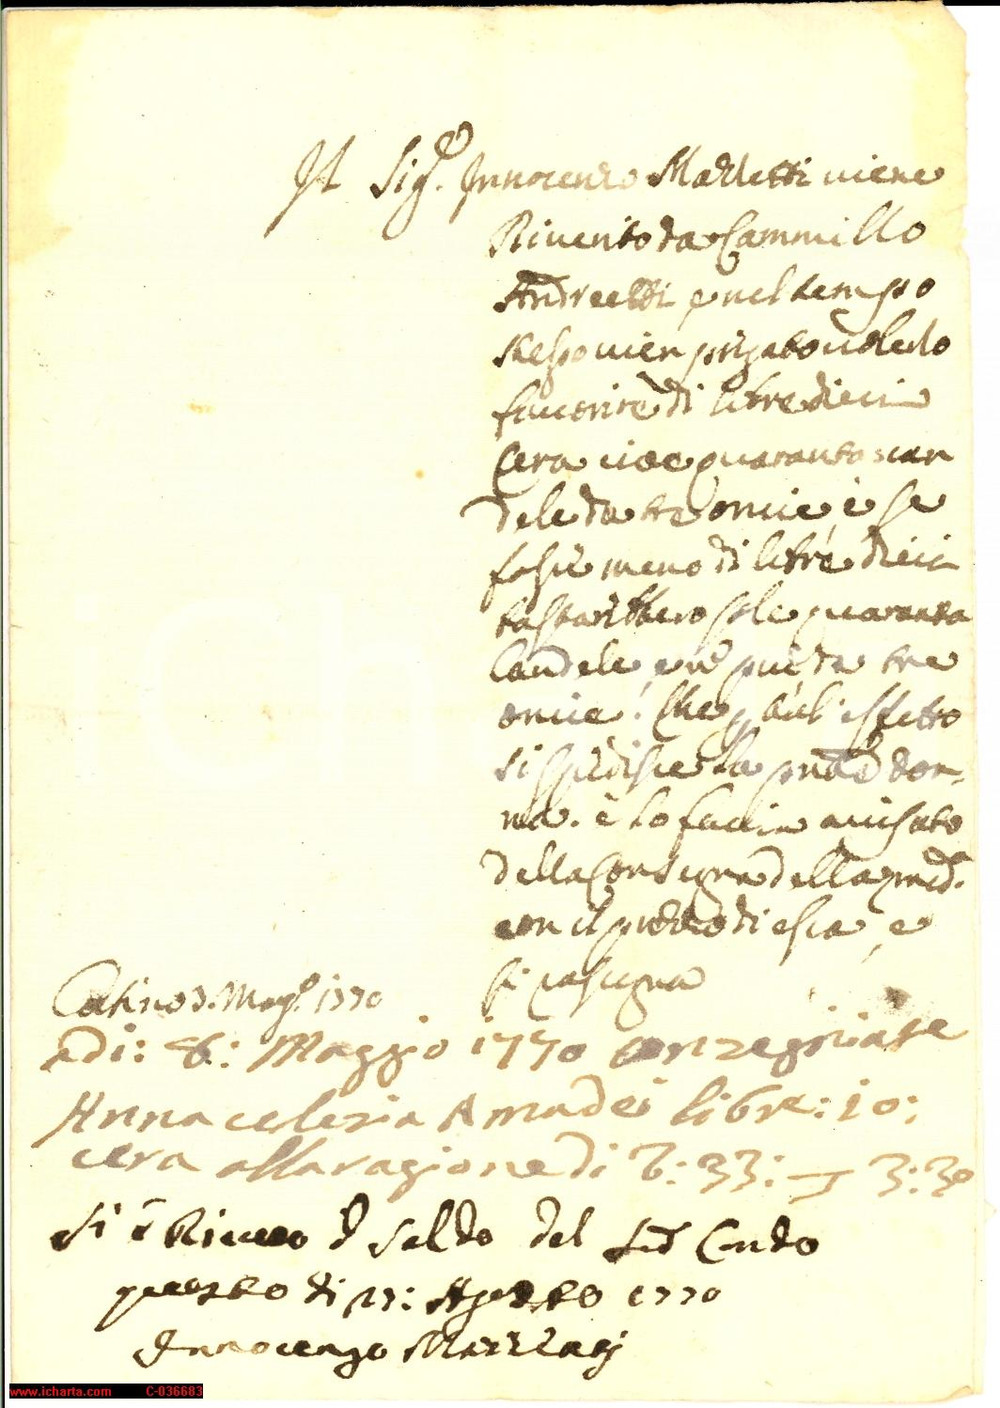 Il Sig.re Innocenzo Marletti viene
Riverito da Cammillo
Andreetti e nel tempo
stesso vien pregato volerlo
favorire di libre dieci
Cera cioè quaranta can
dele da tre oncie, e se
fosse meno di libre dieci
basterebbero sole quaranta
Candele, e n più da tre
oncie. Che tal effetto
si spedisce la don-
na. e lo faccia avisato
della Consegna della med.a
con il prezzo di essa, e
si rasegna
Casino 3. Mag.o 1770
Adi: 8: Maggio 1770 conzegniate
Anna celeria Amadei libre: 10:
cera alla ragione di b: 33: 3:30
Si è Riceuto Saldo del Conto
questo di 27: Agosto 1770
Innocenzo
www.icharta.com C-036683
iCharta